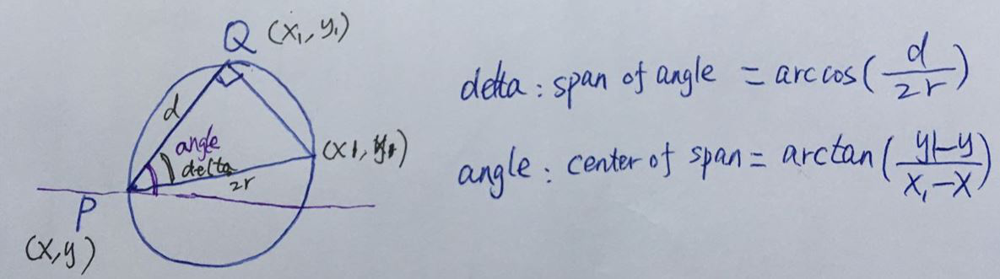 Q (x₁, y₁)
d
angle
delta
2r
P
(x, y)
delta : span of angle = arccos(d/2r)
angle : center of span = arctan(y1-y/x₁-x)